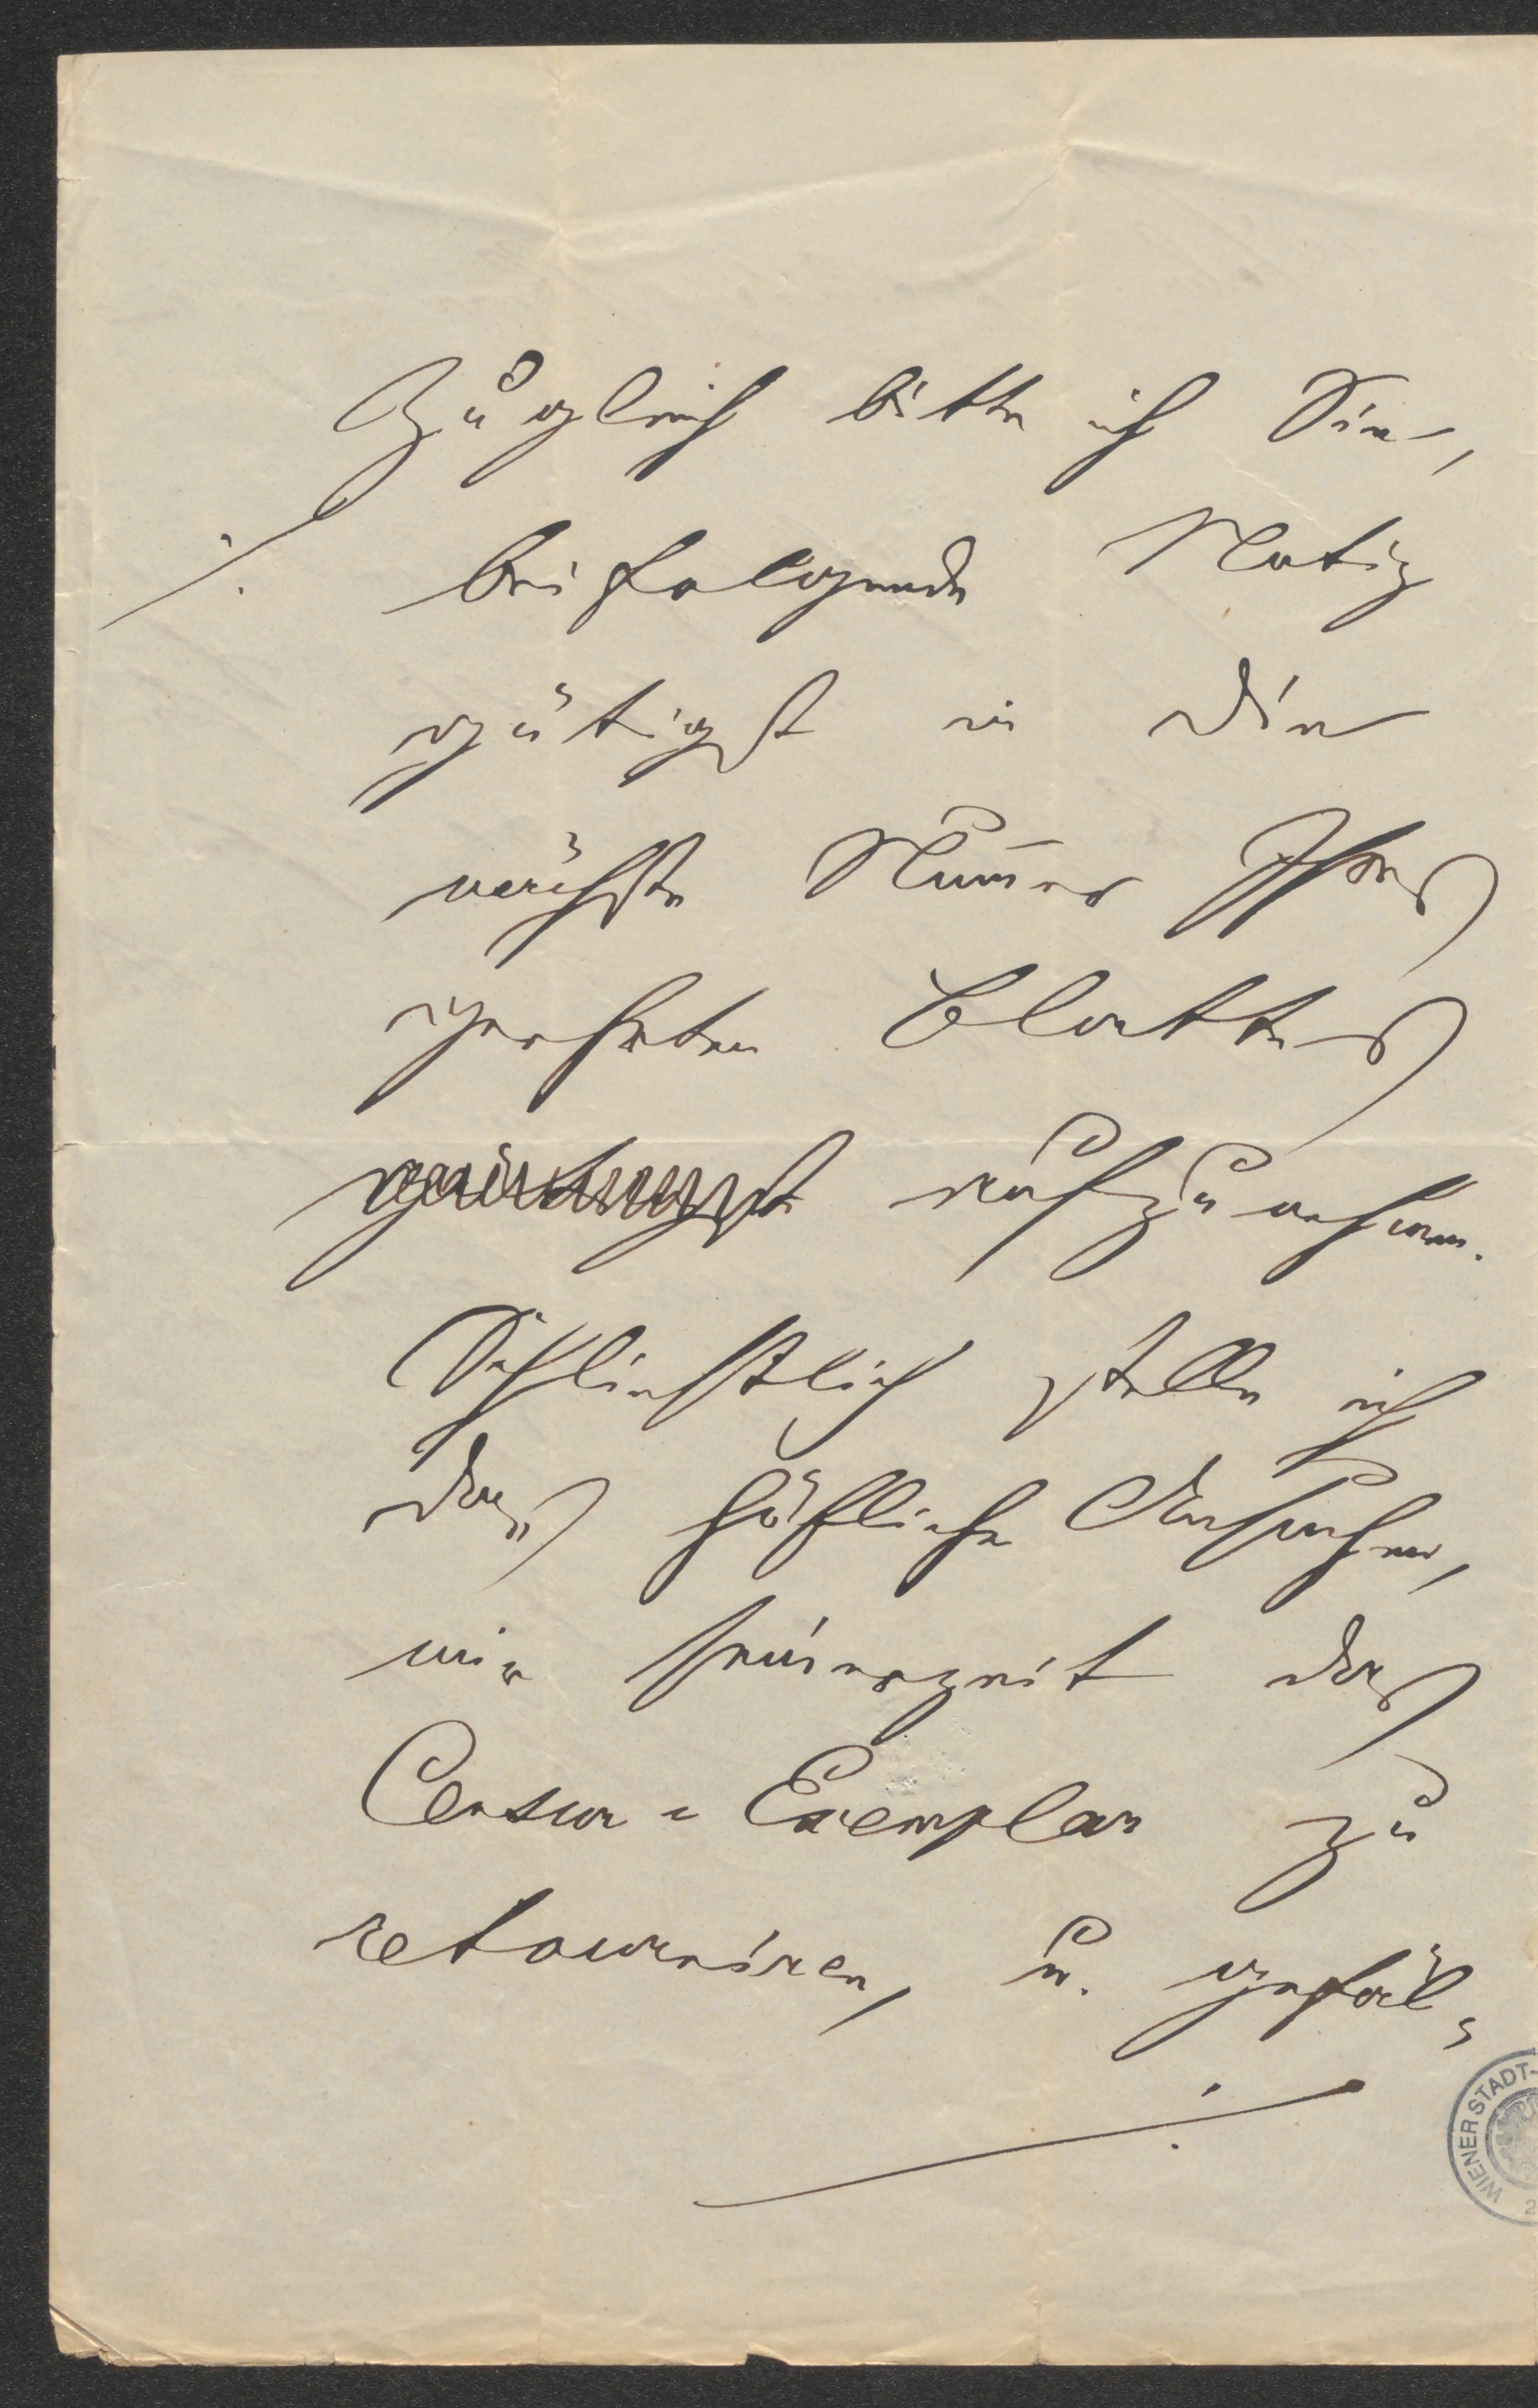 Zugleich bitte ich Sie,
./. beifolgende Notiz
gütigst in die
nächste Num̄er Ihres
geehrten Blattes
gütigst aufzunehmen.
Schließlich stelle ich
das höfliche Ansuchen,
mir seinerzeit das
Censur-Exemplar zu
retourniren, u. gefäl-
./.
WIENER STADT-
2